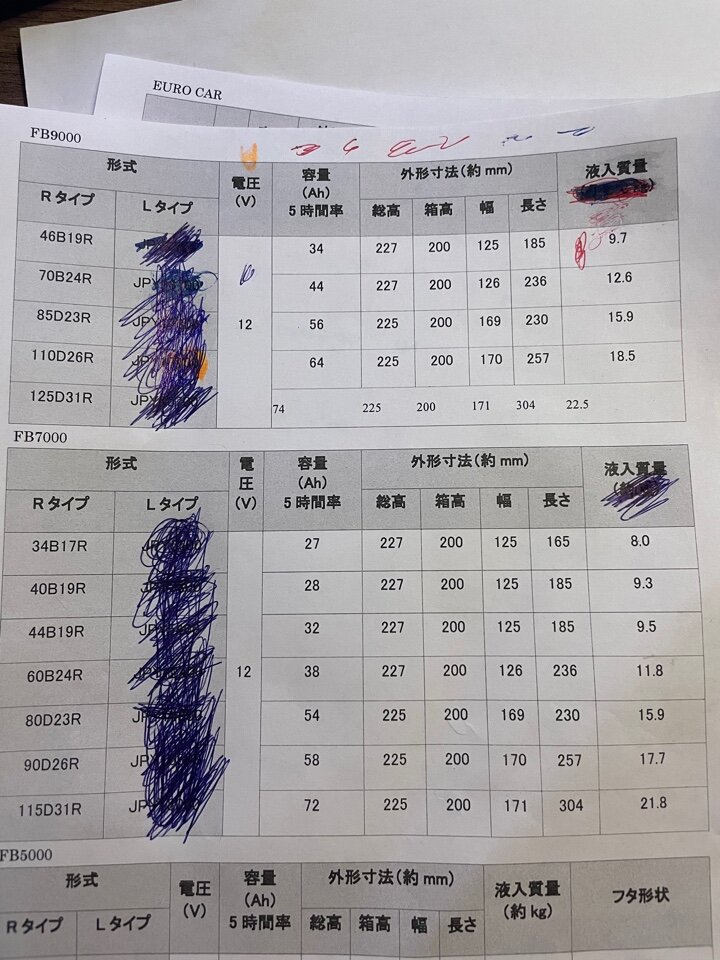 EURO CAR
FB9000
形式 電圧 (V) 容量 (Ah) 5時間率 外形寸法(約mm) 液入質量
Rタイプ Lタイプ 総高 箱高 幅 長さ
46B19R 34 227 200 125 185 9.7
70B24R JP 44 227 200 126 236 12.6
85D23R JP 12 56 225 200 169 230 15.9
110D26R JP 64 225 200 170 257 18.5
125D31R JP 74 225 200 171 304 22.5
FB7000
形式 電圧 (V) 容量 (Ah) 5時間率 外形寸法(約mm) 液入質量
Rタイプ Lタイプ 総高 箱高 幅 長さ
34B17R 27 227 200 125 165 8.0
40B19R 28 227 200 125 185 9.3
44B19R 32 227 200 125 185 9.5
60B24R 12 38 227 200 126 236 11.8
80D23R 54 225 200 169 230 15.9
90D26R 58 225 200 170 257 17.7
115D31R 72 225 200 171 304 21.8
FB5000
形式 電圧 (V) 容量 (Ah) 5時間率 外形寸法(約mm) 液入質量 (約kg) フタ形状
Rタイプ Lタイプ 総高 箱高 幅 長さ